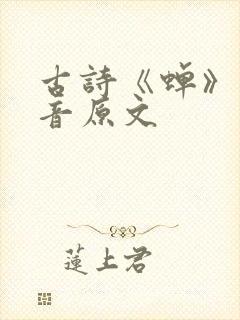 古詩《蟬》
音原文
蓮上君